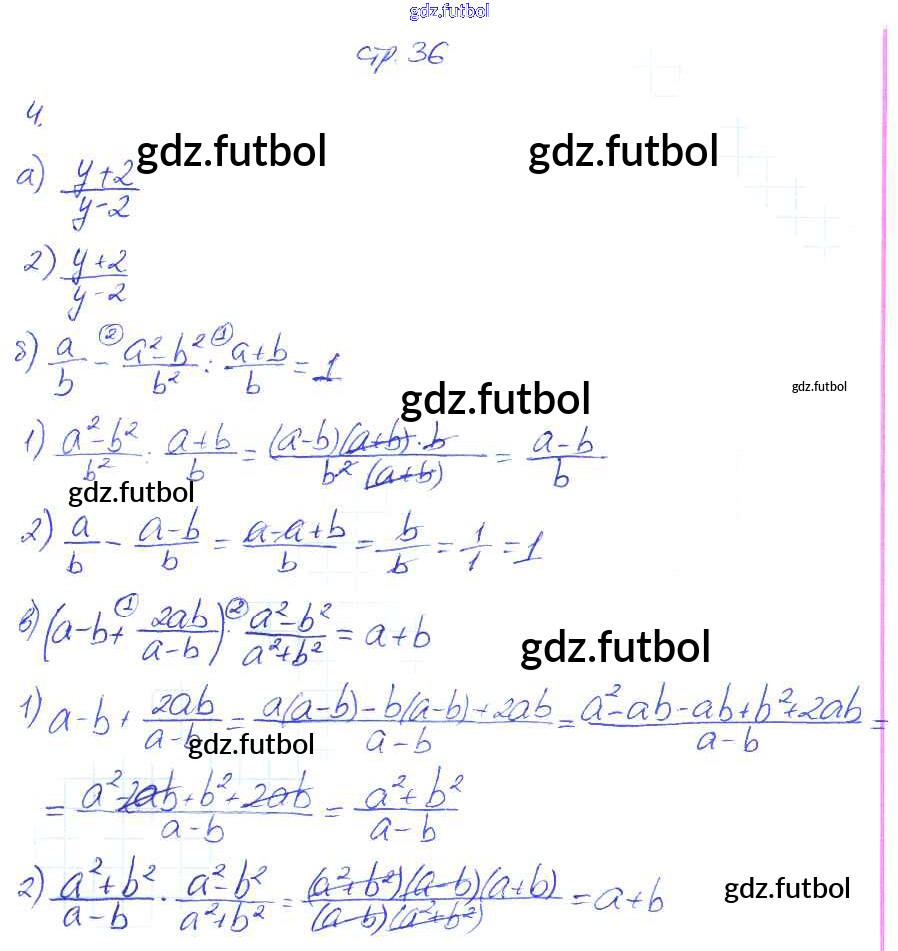 gdz.futbol
стр. 36
4.
gdz.futbol gdz.futbol
а) (y+2)/(y-2)
2) (y+2)/(y-2)
б) a/b -② (a²-b²)/b² :① (a+b)/b = 1
gdz.futbol gdz.futbol
1) (a²-b²)/b² : (a+b)/b = ((a-b)(a+b)·b)/(b²(a+b)) = (a-b)/b
gdz.futbol
2) a/b - (a-b)/b = (a-a+b)/b = b/b = 1/1 = 1
в) (a-b+① 2ab/(a-b)) ·② (a²-b²)/(a²+b²) = a+b
gdz.futbol
1) a-b + 2ab/(a-b) = (a(a-b)-b(a-b)+2ab)/(a-b) = (a²-ab-ab+b²+2ab)/(a-b) =
gdz.futbol
= (a²-2ab+b²+2ab)/(a-b) = (a²+b²)/(a-b)
2) (a²+b²)/(a-b) · (a²-b²)/(a²+b²) = ((a²+b²)(a-b)(a+b))/((a-b)(a²+b²)) = a+b
gdz.futbol